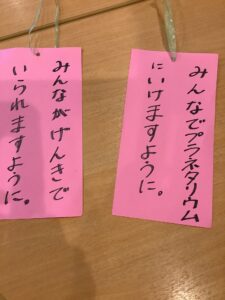 みんなでプラネタリウム
にいけますように。
みんながげんきで
いられますように。